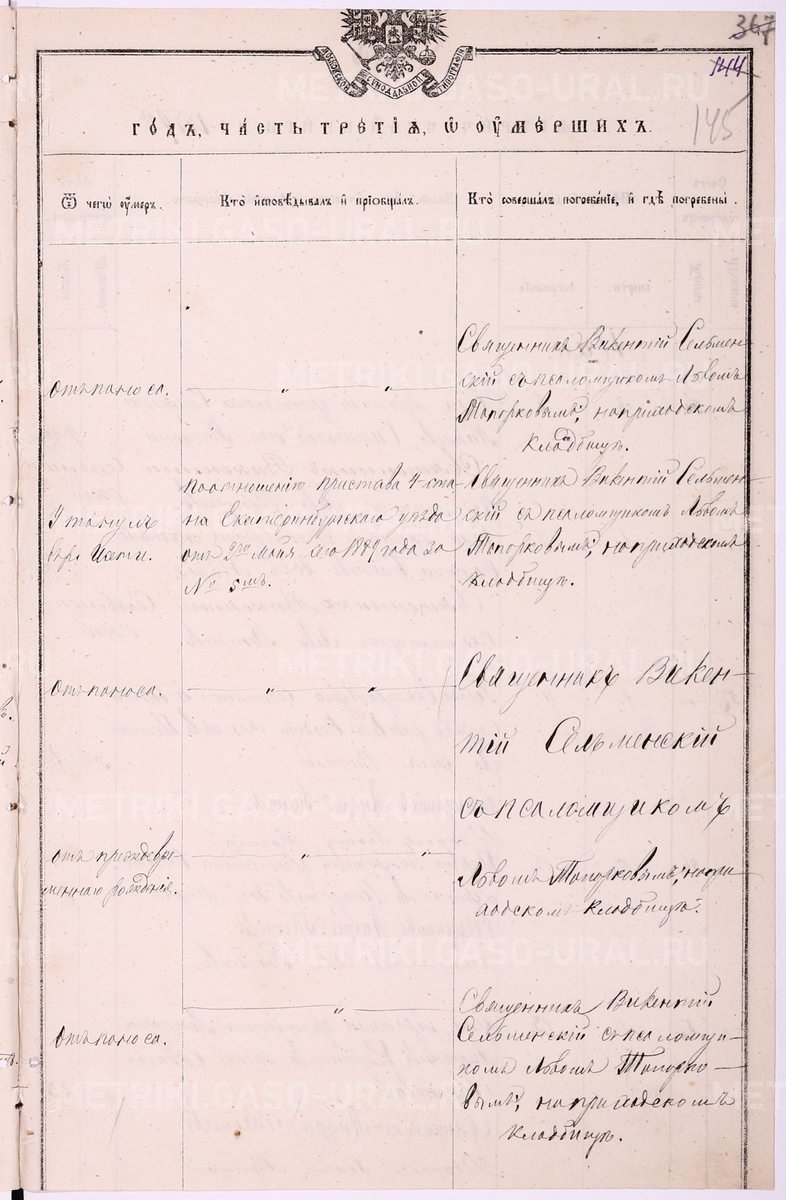 367
144
145
МОСКОВСКОЙ СѴНОДАЛЬНОЙ ТИПОГРАФІИ
ГО́ДЪ, ЧА́СТЬ ТРЕ́ТІѦ, Ѿ ОУ҆МЕ́РШИХЪ.
Ѿ чегѡ̀ оу҆́меръ.
Кто̀ и҆сповѣ́дывалъ и҆ прїѡбща́лъ.
Кто̀ соверша́лъ погребе́нїе, и҆ гдѣ̀ погребены̀.
Отъ поноса.
Священникъ Викентій Сельмен-
скій съ псаломщикомъ Львомъ
Топорковымъ, на приходскомъ
кладбищѣ.
Утонулъ
въ р. Исети.
По отношенію пристава 4 ста-
на Екатеринбургскаго уѣзда
отъ 9го Мая сего 1889 года за
№ 5мъ.
Священникъ Викентій Сельмен-
скій съ псаломщикомъ Львомъ
Топорковымъ, на приходскомъ
кладбищѣ.
Отъ поноса.
Священникъ Викен-
тій Сельменскій
съ псаломщикомъ
Отъ преждевре-
меннаго рожденія.
Львомъ Топорковымъ, на при-
ходскомъ кладбищѣ.
Отъ поноса.
Священникъ Викентій
Сельменскій съ псаломщи-
комъ Львомъ Топорко-
вымъ, на приходскомъ
кладбищѣ.
METRIKI.GASO-URAL.RU